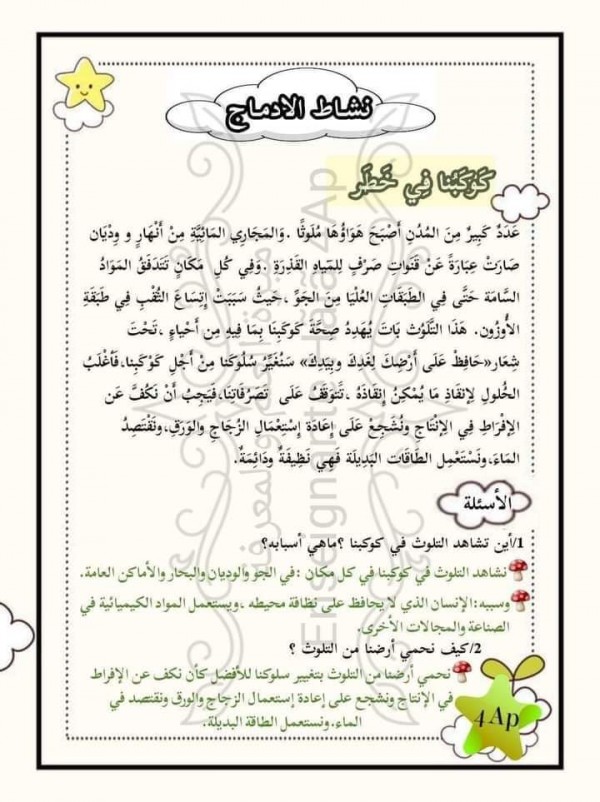 نشاط الادماج
كَوْكَبُنا فِي خَطَر
عَدَدٌ كَبِيرٌ مِنَ المُدُنِ أَصْبَحَ هَوَاؤُهَا مُلَوثًا .وَالمَجَارِي المَائِيَّةِ مِنْ أَنْهَارٍ و وِدْيَان
صَارَتْ عِبَارَةً عَنْ قَنَواتِ صَرْفٍ لِلمِيَاهِ القَذِرَةِ .وَفِي كُلِ مَكَانٍ تَتَدَفَقُ المَوَادُ
السَّامَة حَتَّى فِي الطَبَقَاتِ العُلْيَا مِنَ الجَوِّ ،حَيثُ سَبَبَتْ إِتِسَاعَ الثُقْبِ فِي طَبَقَةِ
الأُوزُون. هَذَا التَّلَوُثُ بَاتَ يُهَدِدُ صِحَّةَ كَوكَبِنَا بِمَا فِيهِ مِن أَحْيَاءٍ ،تَحْتَ
شِعَار«حَافِظْ عَلَى أَرْضِكَ لِغَدِكَ وبِيَدِكَ» سَنُغَيِّرُ سُلُوكَنَا مِنْ أَجْلِ كَوْكَبِنا،فَأغْلَبُ
الحُلولِ لِإنقَاذِ مَا يُمْكِنُ إِنقَاذُهُ ،تَتَوَقَفُ عَلَى تَصَرُفَاتِنَا،فَيَجِبُ أَنْ نَكُفَّ عَن
الإِفْرَاطِ فِي الإِنْتَاجِ ونُشَجِعَ عَلَى إِعَادَةِ إِسْتِعْمَالِ الزُجَاجِ والوَرَقِ،ونَقْتَصِدُ
المَاءَ،ونَسْتَعْمِل الطَاقَات البَدِيلَة فَهِي نَظِيفَةٌ ودَائِمَةٌ.
الأسئلة
1/أين تشاهد التلوث في كوكبنا ؟ماهي أسبابه؟
نشاهد التلوث في كوكبنا في كل مكان :في الجو والوديان والبحار والأماكن العامة.
وسببه:الإنسان الذي لا يحافظ على نظافة محيطه ،ويستعمل المواد الكيميائية في
الصناعة والمجالات الأخرى.
2/كيف نحمي أرضنا من التلوث ؟
نحمي أرضنا من التلوث بتغيير سلوكنا للأفضل كأن نكف عن الإفراط
في الإنتاج ونشجع على إعادة إستعمال الزجاج والورق ونقتصد في
الماء.ونستعمل الطاقة البديلة.
4Ap
Enseignante Hala 4Ap